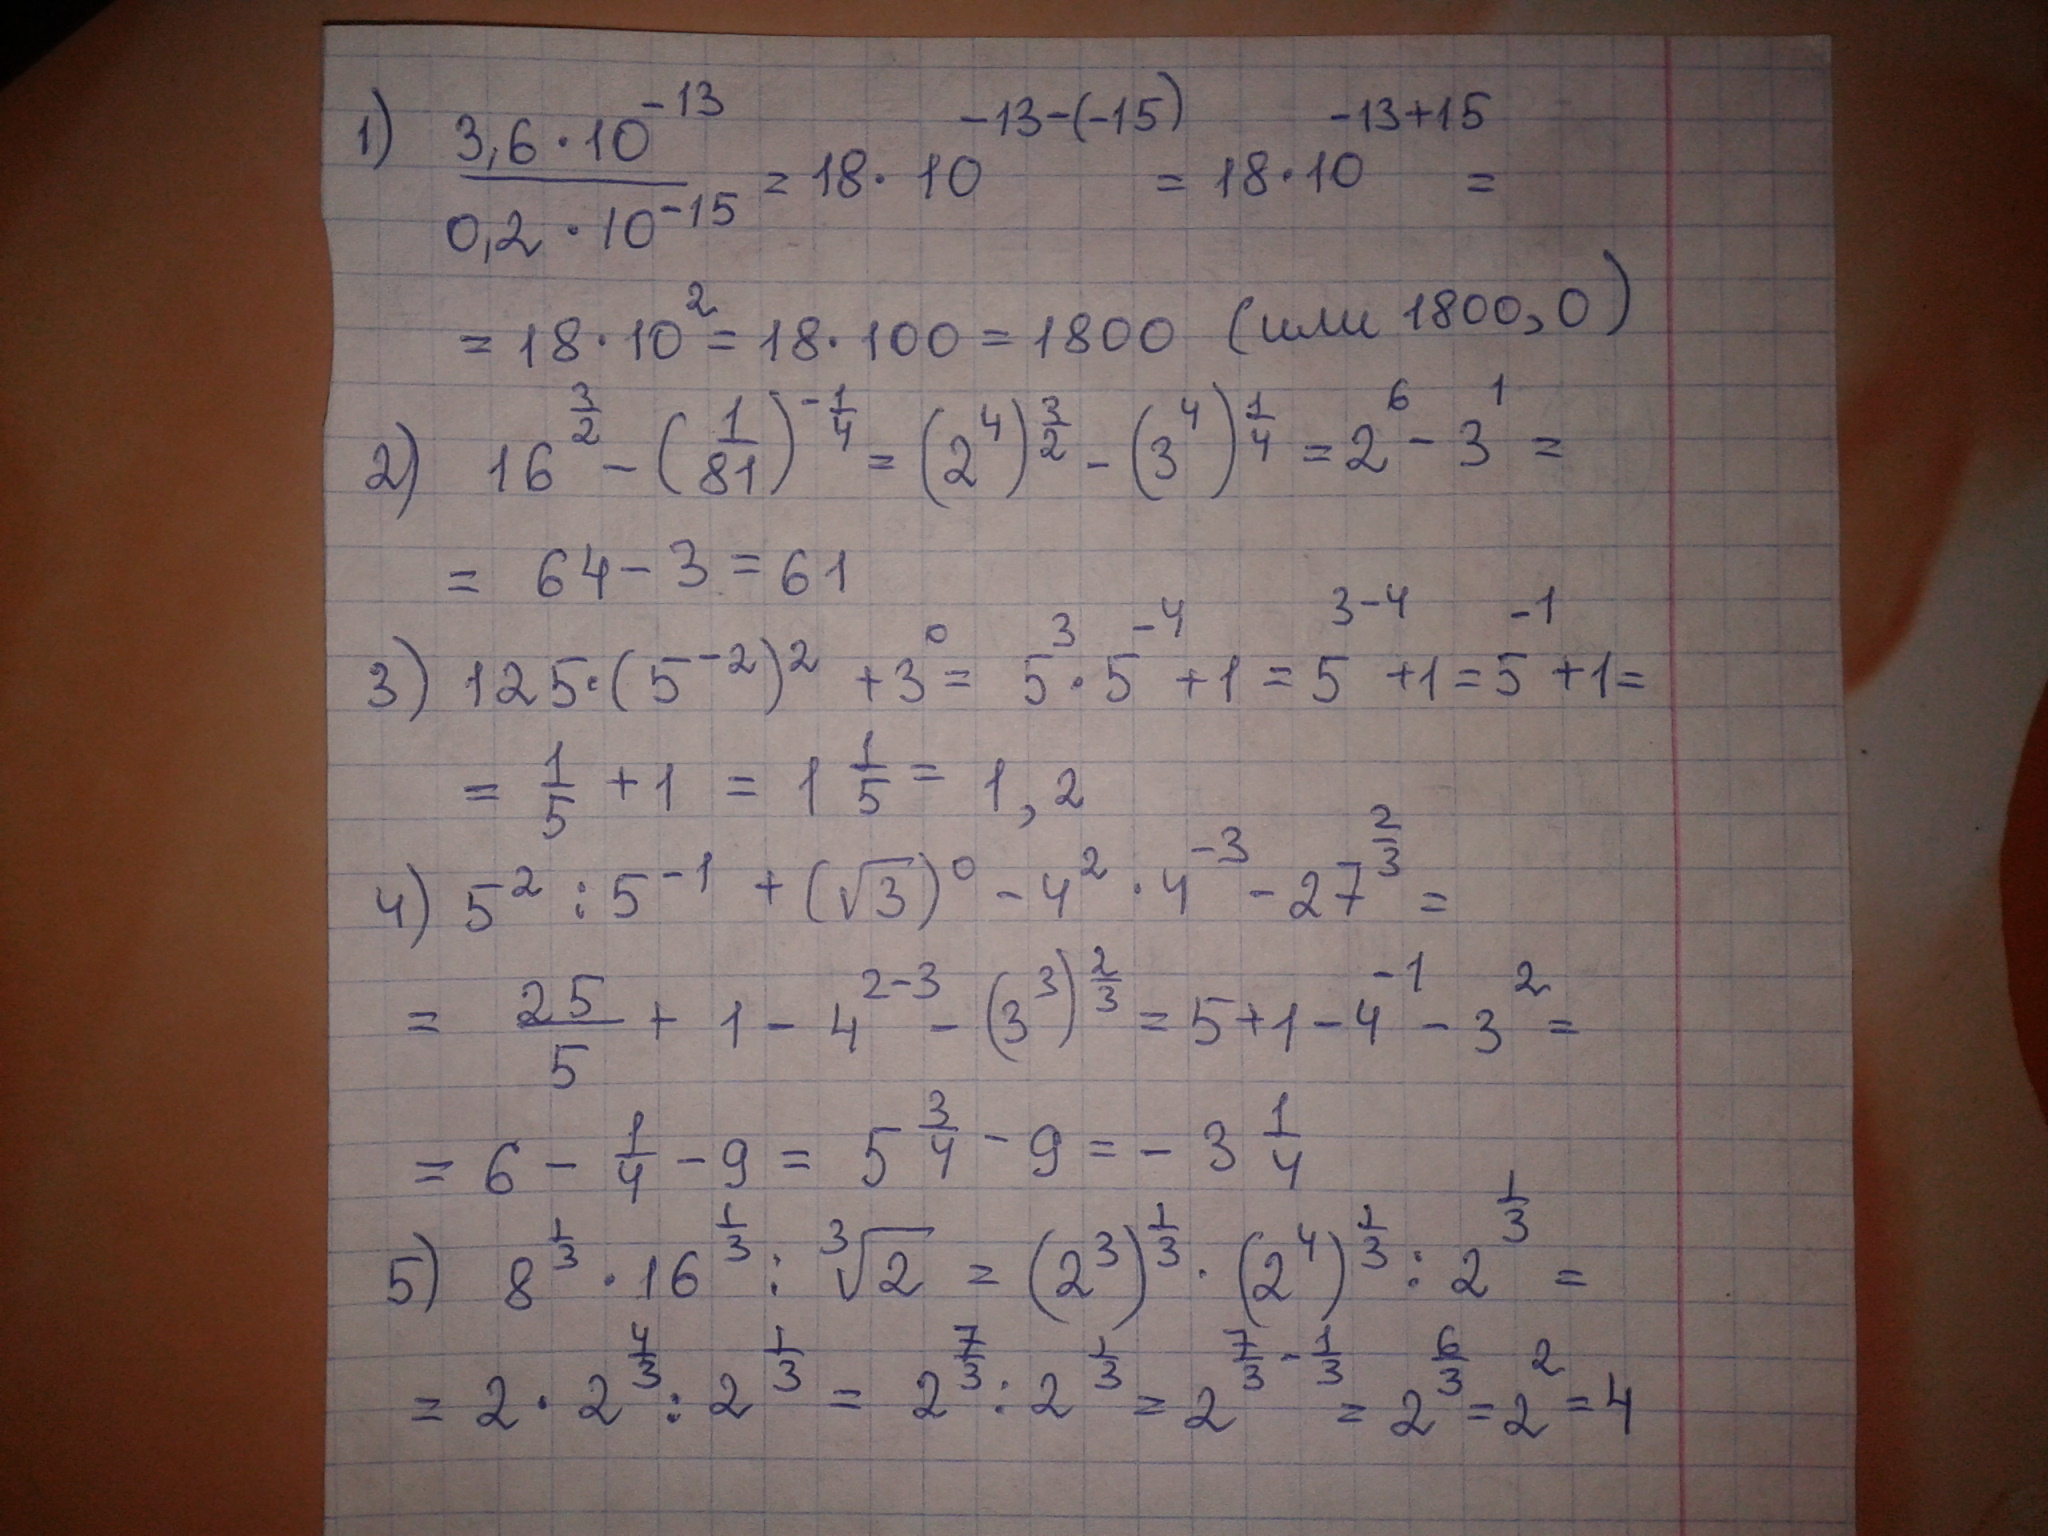 1) 3,6·10^-13 / 0,2·10^-15 = 18·10^-13-(-15) = 18·10^-13+15 =
= 18·10^2 = 18·100 = 1800 (или 1800,0)
2) 16^3/2 - (1/81)^-1/4 = (2^4)^3/2 - (3^4)^1/4 = 2^6 - 3^1 =
= 64 - 3 = 61
3) 125·(5^-2)^2 + 3^0 = 5^3·5^-4 + 1 = 5^3-4 + 1 = 5^-1 + 1 =
= 1/5 + 1 = 1 1/5 = 1,2
4) 5^2 : 5^-1 + (√3)^0 - 4^2·4^-3 - 27^2/3 =
= 25/5 + 1 - 4^2-3 - (3^3)^2/3 = 5+1-4^-1 - 3^2 =
= 6 - 1/4 - 9 = 5 3/4 - 9 = - 3 1/4
5) 8^1/3 · 16^1/3 : ∛2 = (2^3)^1/3 · (2^4)^1/3 : 2^1/3 =
= 2·2^4/3 : 2^1/3 = 2^7/3 : 2^1/3 = 2^7/3-1/3 = 2^6/3 = 2^2 = 4